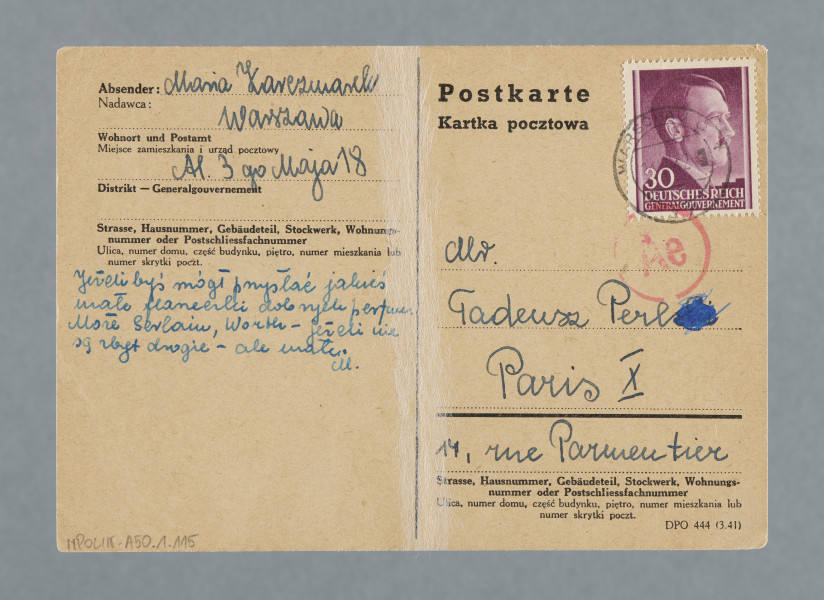 Absender: Maria Karczmarek
Nadawca:
Warszawa
Wohnort und Postamt
Miejsce zamieszkania i urząd pocztowy
Al. 3 go Maja 18
Distrikt — Generalgouvernement
Strasse, Hausnummer, Gebäudeteil, Stockwerk, Wohnungs-
nummer oder Postschliessfachnummer
Ulica, numer domu, część budynku, piętro, numer mieszkania lub
numer skrytki poczt.
Jeżeli byś mógł przysłać jakieś
małe flaneczki dobrych perfum.
Może Worth – jeżeli nie
są zbyt drogie – ale małe.
M.
MPOLIN-A50.1.115
Postkarte
Kartka pocztowa
30
DEUTSCHES REICH
GENERALGOUVERNEMENT
Ae
Tadeusz
Paris X
14, rue Parmentier
Strasse, Hausnummer, Gebäudeteil, Stockwerk, Wohnungs-
nummer oder Postschliessfachnummer
Ulica, numer domu, część budynku, piętro, numer mieszkania lub
numer skrytki poczt.
DPO 444 (3.41)